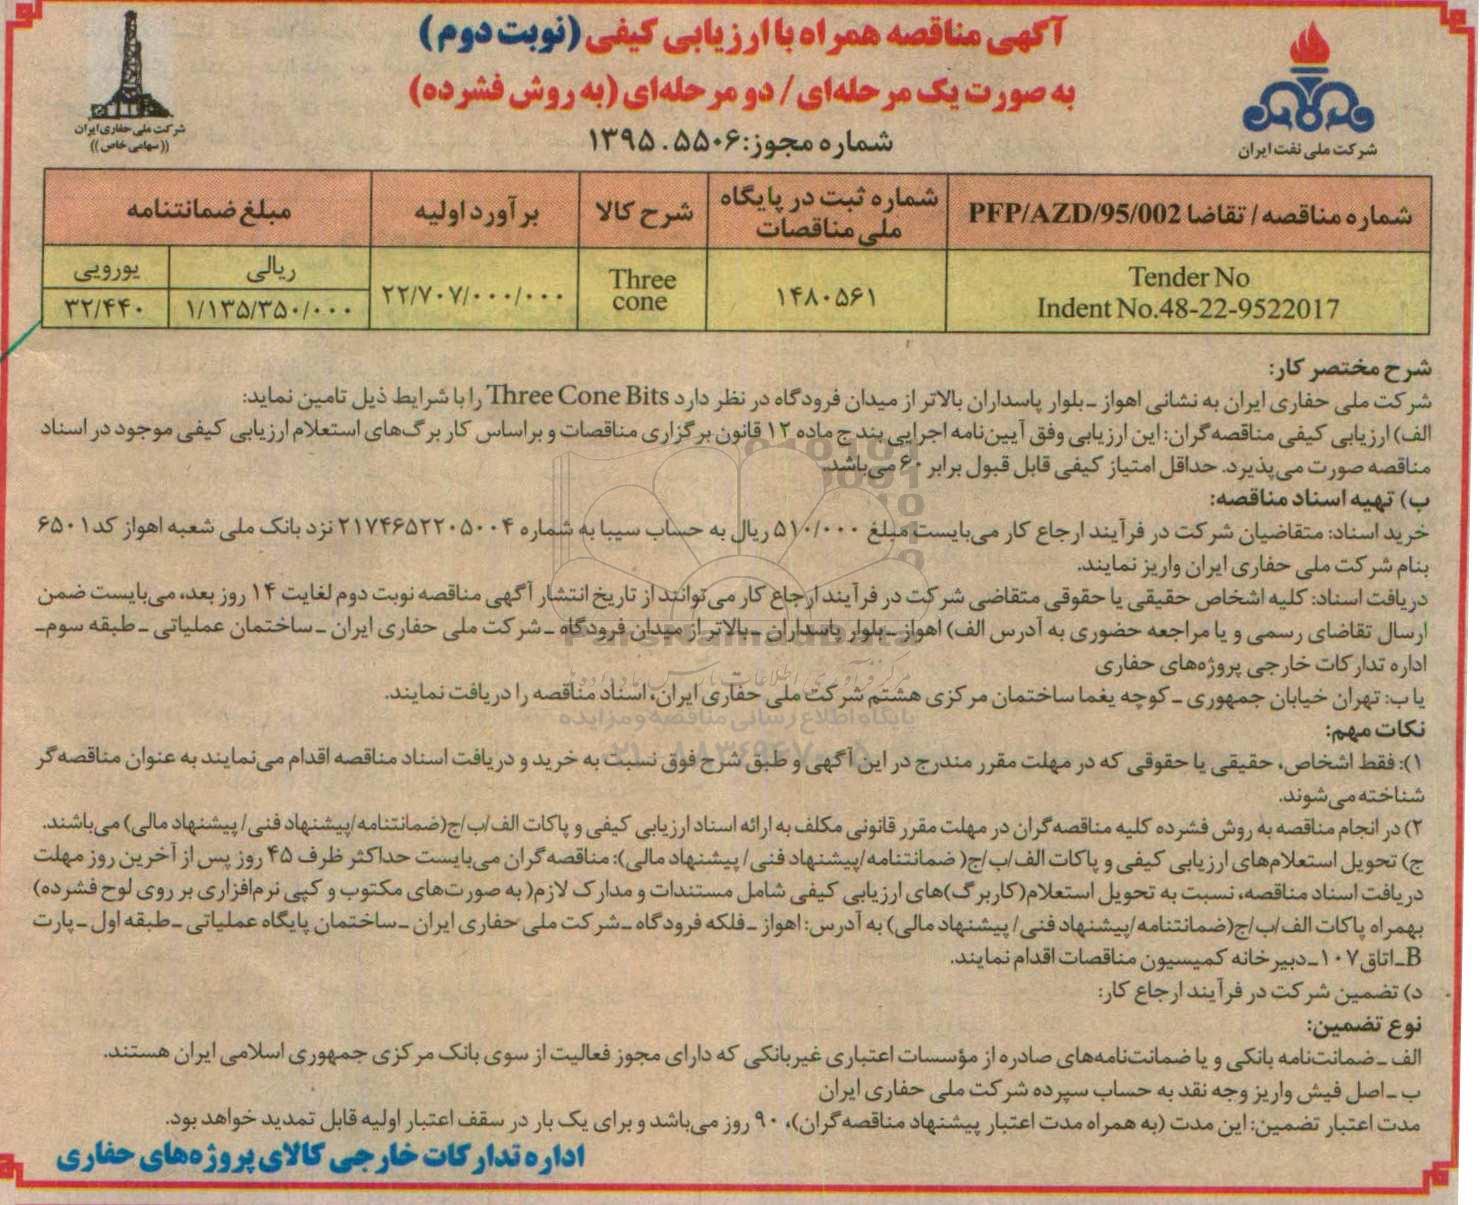 آگهی مناقصه همراه با ارزیابی کیفی (نوبت دوم)
به صورت یک مرحله‌ای / دو مرحله‌ای (به روش فشرده)
شماره مجوز: ۱۳۹۵.۵۵۰۶
شرکت ملی نفت ایران
شرکت ملی حفاری ایران
((سهامی خاص))
شماره مناقصه / تقاضا PFP/AZD/95/002
شماره ثبت در پایگاه ملی مناقصات
شرح کالا
برآورد اولیه
مبلغ ضمانتنامه
Tender No
Indent No.48-22-9522017
۱۴۸۰۵۶۱
Three cone
۲۲/۷۰۷/۰۰۰/۰۰۰
ریالی
یورویی
۱/۱۳۵/۳۵۰/۰۰۰
۳۲/۴۴۰
شرح مختصر کار:
شرکت ملی حفاری ایران به نشانی اهواز ـ بلوار پاسداران بالاتر از میدان فرودگاه در نظر دارد Three Cone Bits را با شرایط ذیل تامین نماید:
الف) ارزیابی کیفی مناقصه‌گران: این ارزیابی وفق آیین‌نامه اجرایی بند ج ماده ۱۲ قانون برگزاری مناقصات و براساس کاربرگ‌های استعلام ارزیابی کیفی موجود در اسناد
مناقصه صورت می‌پذیرد. حداقل امتیاز کیفی قابل قبول برابر ۶۰ می‌باشد.
ب) تهیه اسناد مناقصه:
خرید اسناد: متقاضیان شرکت در فرآیند ارجاع کار می‌بایست مبلغ ۵۱۰/۰۰۰ ریال به حساب سیبا به شماره ۲۱۷۴۶۵۲۲۰۵۰۰۴ نزد بانک ملی شعبه اهواز کد ۶۵۰۱
بنام شرکت ملی حفاری ایران واریز نمایند.
دریافت اسناد: کلیه اشخاص حقیقی یا حقوقی متقاضی شرکت در فرآیند ارجاع کار می‌توانند از تاریخ انتشار آگهی مناقصه نوبت دوم لغایت ۱۴ روز بعد، می‌بایست ضمن
ارسال تقاضای رسمی و یا مراجعه حضوری به آدرس الف) اهواز ـ بلوار پاسداران ـ بالاتر از میدان فرودگاه ـ شرکت ملی حفاری ایران ـ ساختمان عملیاتی ـ طبقه سوم ـ
اداره تدارکات خارجی پروژه‌های حفاری
یا ب: تهران خیابان جمهوری ـ کوچه یغما ساختمان مرکزی هشتم شرکت ملی حفاری ایران، اسناد مناقصه را دریافت نمایند.
نکات مهم:
۱): فقط اشخاص، حقیقی یا حقوقی که در مهلت مقرر مندرج در این آگهی و طبق شرح فوق نسبت به خرید و دریافت اسناد مناقصه اقدام می‌نمایند به عنوان مناقصه‌گر
شناخته می‌شوند.
۲) در انجام مناقصه به روش فشرده کلیه مناقصه‌گران در مهلت مقرر قانونی مکلف به ارائه اسناد ارزیابی کیفی و پاکات الف/ب/ج(ضمانتنامه/پیشنهاد فنی/ پیشنهاد مالی) می‌باشند.
ج) تحویل استعلام‌های ارزیابی کیفی و پاکات الف/ب/ج( ضمانتنامه/پیشنهاد فنی/ پیشنهاد مالی): مناقصه‌گران می‌بایست حداکثر ظرف ۴۵ روز پس از آخرین روز مهلت
دریافت اسناد مناقصه، نسبت به تحویل استعلام(کاربرگ)های ارزیابی کیفی شامل مستندات و مدارک لازم( به صورت‌های مکتوب و کپی نرم‌افزاری بر روی لوح فشرده)
بهمراه پاکات الف/ب/ج(ضمانتنامه/پیشنهاد فنی/ پیشنهاد مالی) به آدرس: اهواز ـ فلکه فرودگاه ـ شرکت ملی حفاری ایران ـ ساختمان پایگاه عملیاتی ـ طبقه اول ـ پارت
B ـ اتاق ۱۰۷ ـ دبیرخانه کمیسیون مناقصات اقدام نمایند.
د) تضمین شرکت در فرآیند ارجاع کار:
نوع تضمین:
الف ـ ضمانت‌نامه بانکی و یا ضمانت‌نامه‌های صادره از مؤسسات اعتباری غیربانکی که دارای مجوز فعالیت از سوی بانک مرکزی جمهوری اسلامی ایران هستند.
ب ـ اصل فیش واریز وجه نقد به حساب سپرده شرکت ملی حفاری ایران
مدت اعتبار تضمین: این مدت (به همراه مدت اعتبار پیشنهاد مناقصه‌گران)، ۹۰ روز می‌باشد و برای یک بار در سقف اعتبار اولیه قابل تمدید خواهد بود.
اداره تدارکات خارجی کالای پروژه‌های حفاری
پایگاه اطلاع رسانی مناقصه و مزایده